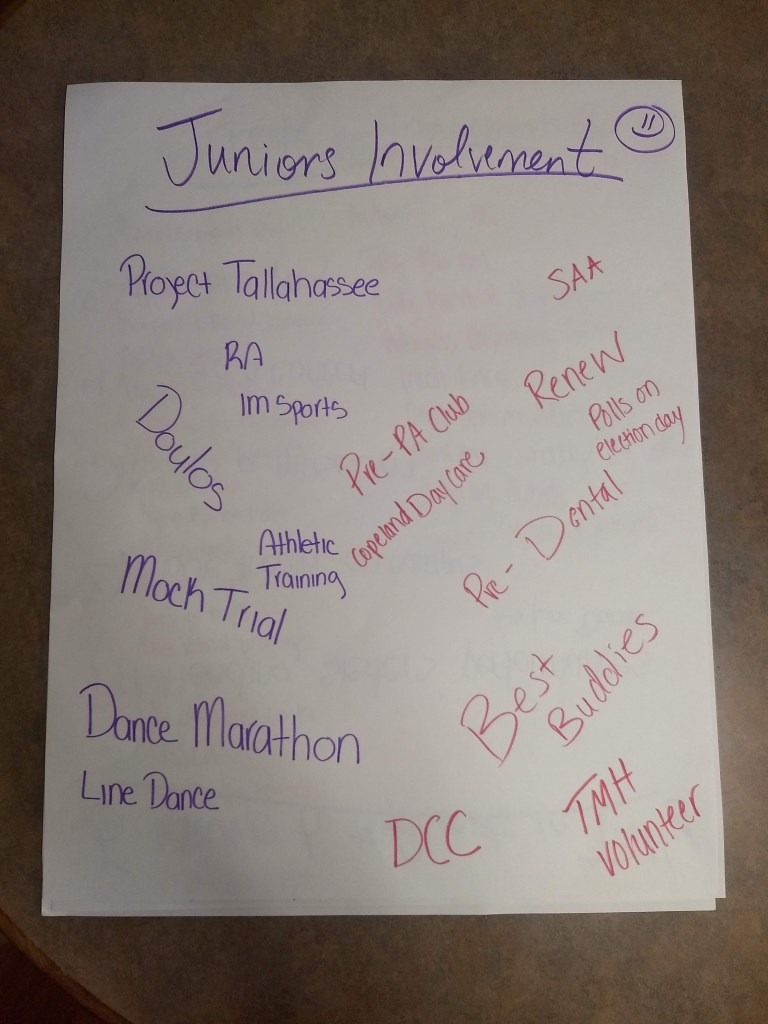 Juniors Involvement
Project Tallahassee
SAA
RA
IM Sports
Renew
Doulos
Pre-PA Club
Polls on
election day
Copeland Daycare
Athletic
Training
Pre-Dental
Mock Trial
Best
Buddies
Dance Marathon
Line Dance
DCC
TMH
volunteer